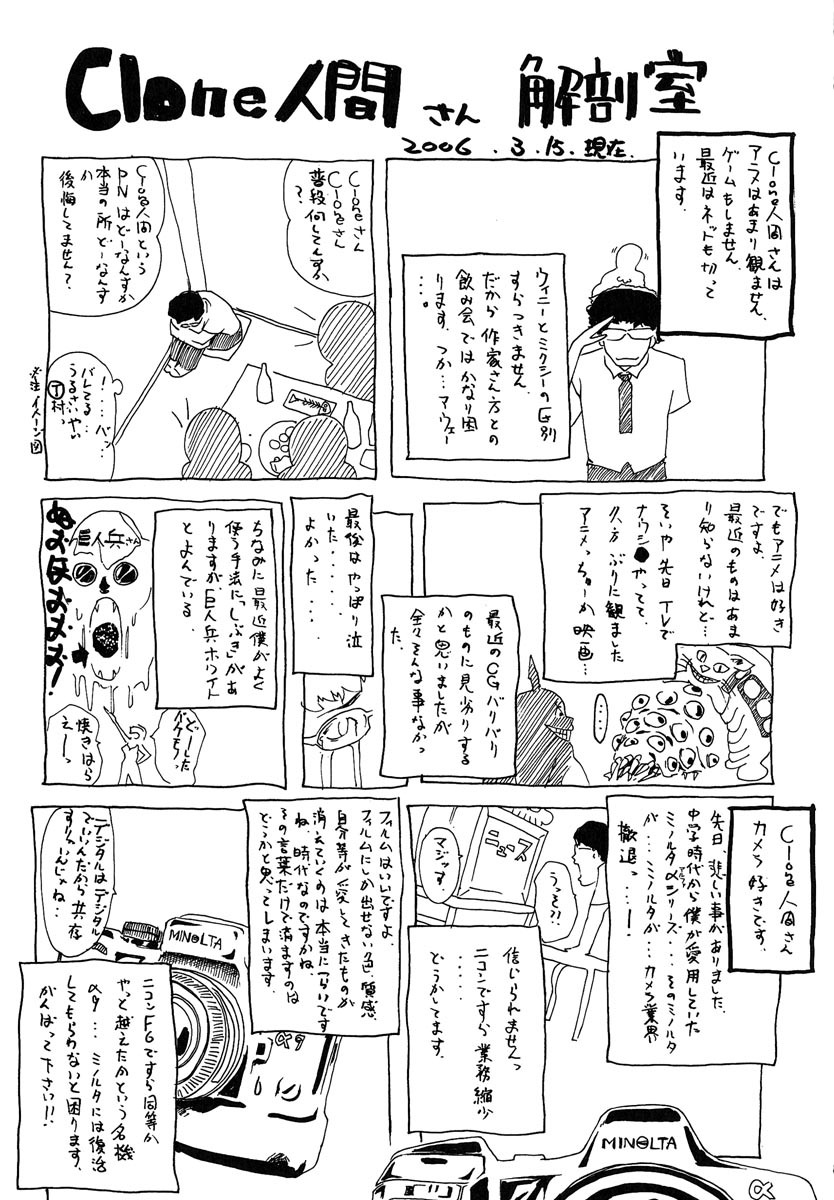 Clone人間 さん 解剖室
2006 . 3 . 15 . 現在.
Clone人間さんは
アニメはあまり観ません、
ゲームもしません
最近はネットも切って
います。
ウィニーとミクシーの区別
すらつきません
だから作家さん方との
飲み会ではかなり困
ります、つか…アウェー
…。
Cloneさん
Cloneさん
普段何してんすか
?
Clone人間という
PNはどーなんすか
本当の所どーなんす
か
後悔してません?
!……バッ
バレてる…
うるさいやい
T村っ
※注 イメージ図
でもアニメは好き
ですよ、
最近のものはあま
り知らないけれど…
そいや先日TVで
ナウシ●やってて
久方ぶりに観ました
アニメっちゅーか映画…
……
最近のCGバリバリ
のものに見劣りする
かと思いましたが
全くそんな事なかっ
た、
最後はやっぱり泣
いた……
よかった……
ちなみに最近僕がよく
使う手法に「しぶき」があ
りますが巨人兵ホワイト
とよんでいる、
巨人兵さん
ぬおほおおお!
どーした
バケモノっ
焼きはら
えーっ
Clone人間さん
カメラ好きです、
先日、悲しい事がありました、
中学時代から僕が愛用していた
ミノルタαシリーズ…そのミノルタ
アルファ
が…ミノルタが…カメラ業界
撤退っ…!
ニュース
うっそ?!
マジッすか
信じられませんっ
……
ニコンですら業務縮少
どうかしてます、
フィルムはいいですよ、
フィルムにしか出せない色、質感
自分等が愛してきたものが
消えていくのは本当につらいです
ね、時代なのですかね、
その言葉だけで済ますのは
どうかと思ってしまいます、
デジタルはデジタル
でいいんだから共存
すりゃいんじゃね…
ニコンF6ですら同等か
やっと越えたかという名機
α9…ミノルタには復活
してもらわないと困ります、
がんばって下さい!!
MINOLTA
α9
MINOLTA
α